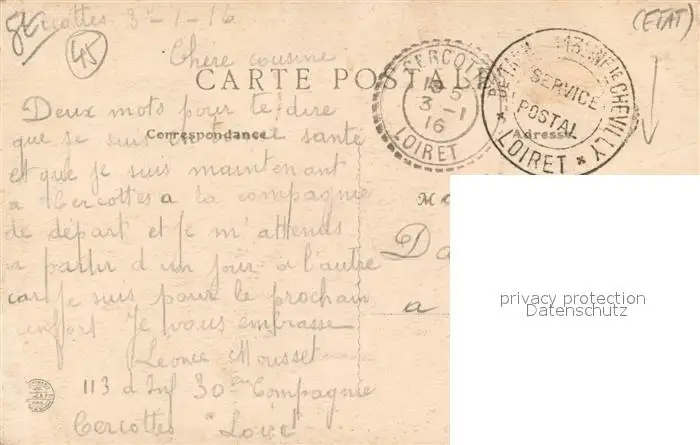 Cercottes 3-1-16
45
(ETAT)
Chère cousine
CARTE POSTALE
CERCOTTES
3 -1
16
LOIRET
113e INFie CHEVILLY
SERVICE
POSTAL
* LOIRET *
Correspondance
Adresse
Deux mots pour te dire
que je suis en santé
et que je suis maintenant
a Cercottes a la compagnie
de départ et je m'attends
a partir d un jour a l'autre
car je suis pour le prochain
renfort Je vous embrasse
Leonce Mousset
113 d Inf 30em Compagnie
Cercottes "Loiret"
M
Da
a
privacy protection
Datenschutz